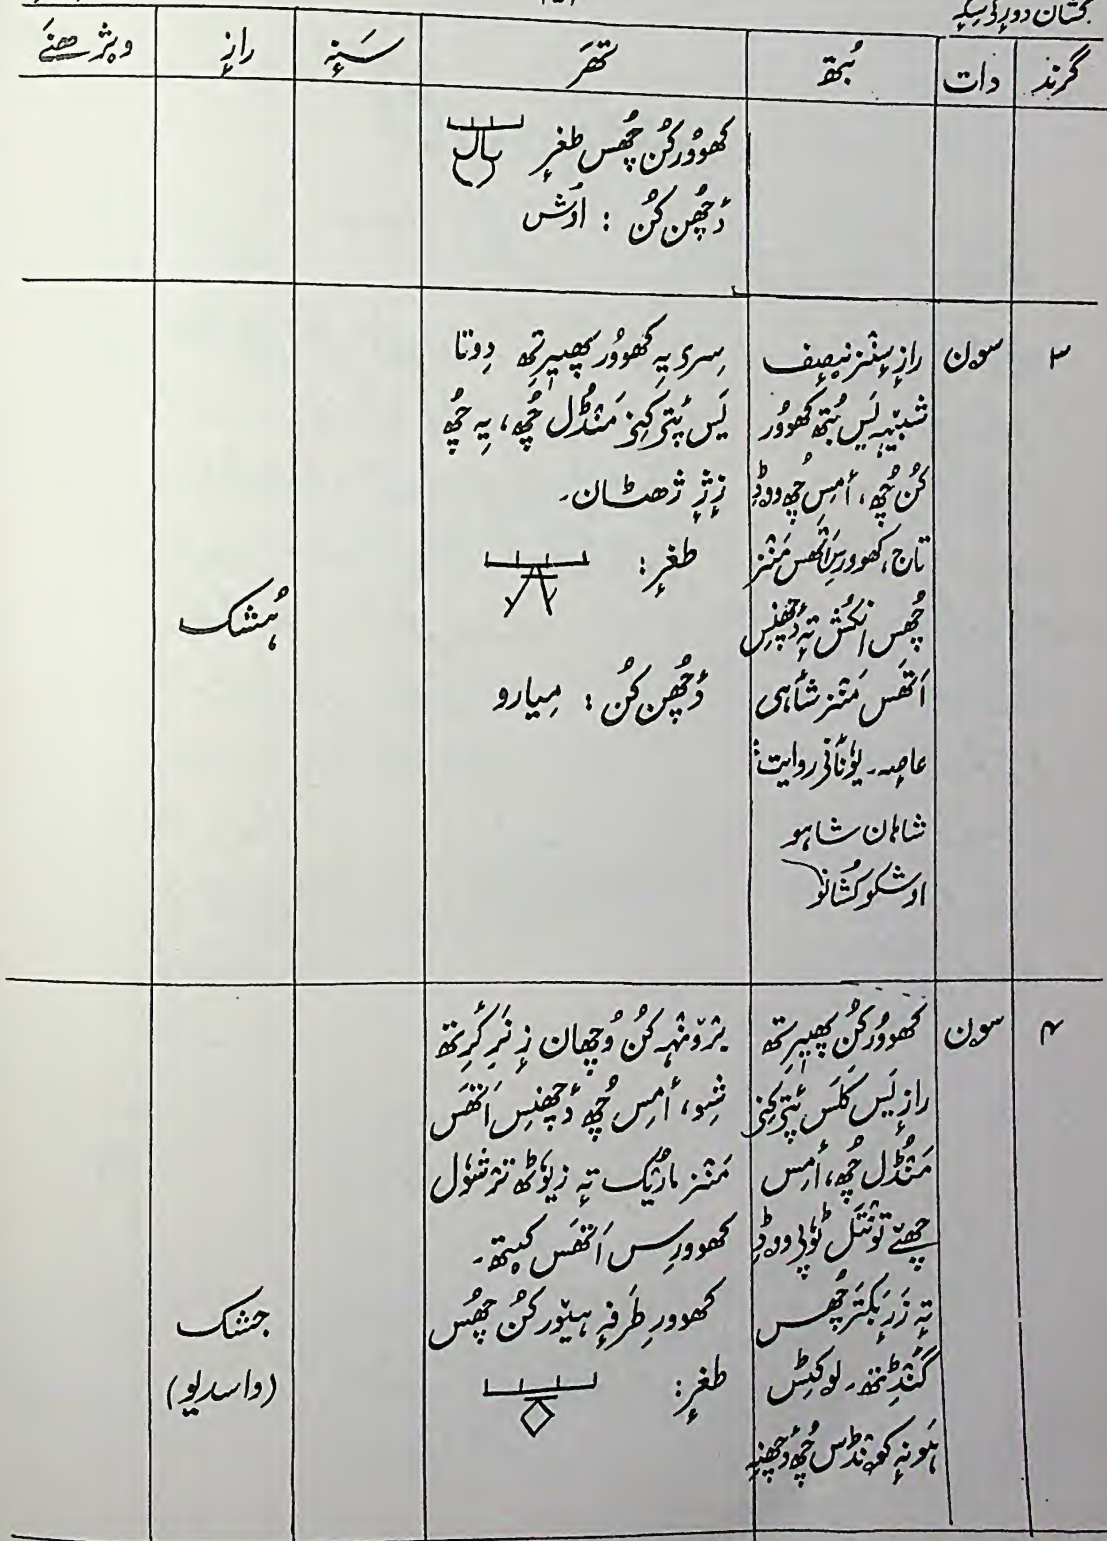 کُشان دورٕکۍ سِکہٕ
گرند	دات	بُتھ	تھَر	سَنہٕ	رازٕ	ویژھنَے
کھووُر کُن چھُس طغرٕ
دٔچھُن کُن : اوش
۳	سون
رازٕ سٕنز نِصف
شبیٖہہ یَس بُتھ کھووُر
کُن چھُ، أمِس چھُ ووڈِ
تاج، کھوورِس اَتھَس مَنٛز
چھُس انکُش تہٕ دٔچھنِس
اَتھَس مَنٛز شٲہی
عاصہ۔ یوٗنٲنۍ روایت:
شاہان شاہو
اوشکو کُشانو
سِریہِ کھووُر پھیٖرتھ دوتا
یَس پَتہٕ کَنہِ مَنڈُل چھُ، یہِ چھُ
زٕژ ژھٹان۔
طغرٕ:
دٔچھُن کُن : مِیارو
ہُشک
۴	سون
کھووُر کُن پھیٖرتھ
رازٕ یَس کَلَس پَتہٕ کَنہِ
مَنڈُل چھُ، أمِس
چھےٚ توٚنتَل ٹوٗپۍ ووڈِ
تہٕ زَرٕ بَکتَر چھُس
گنڈِتھ۔ لوکٹِس
ہَونہٕ کوٚنڈَس چھُ دٔچھنہِ
برٛونٛہہ کُن وُچھان زٕ نَرِ کٔرِتھ
شِو، أمِس چھُ دٔچھنِس اَتھَس
مَنٛز مارُیک تہٕ زیوٗٹھ ترشوٗل
کھوورِس اَتھَس کیٚتھ۔
کھوورِ طَرفہٕ ہیوٚر کُن چھُس
طغرٕ:
جشک
(واسدیو)